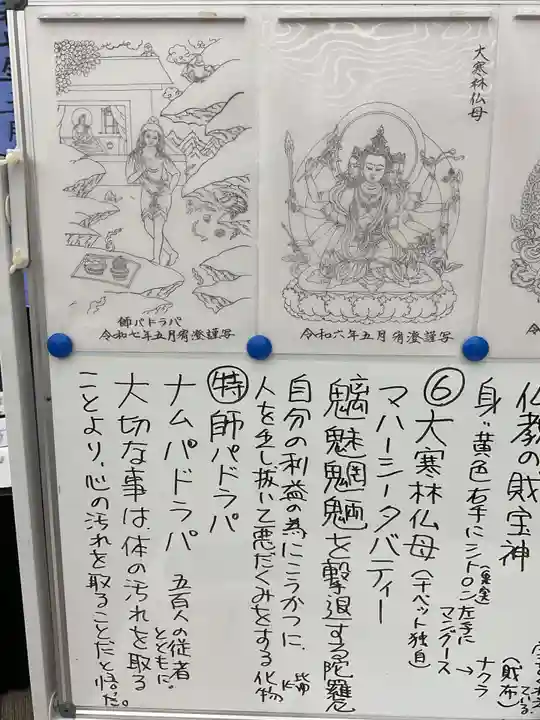 大寒林仏母
令和六年五月宥澄謹写
師パドラパ
令和七年五月宥澄謹写
仏教の財宝神
身〃黄色右手にシトロン(果実)左手に
マングース→ナクラ(財布)
⑥大寒林仏母(チベット独自)
マハーシータバティー
魑魅魍魎を撃退する陀羅尼
自分の利益の為にこうかつに、
人を出し抜いて悪だくみをする化物
㊕師パドラパ
ナムパドラパ 五百人の従者とともに。
大切な事は体の汚れを取る
ことより、心の汚れを取ることだと悟った。